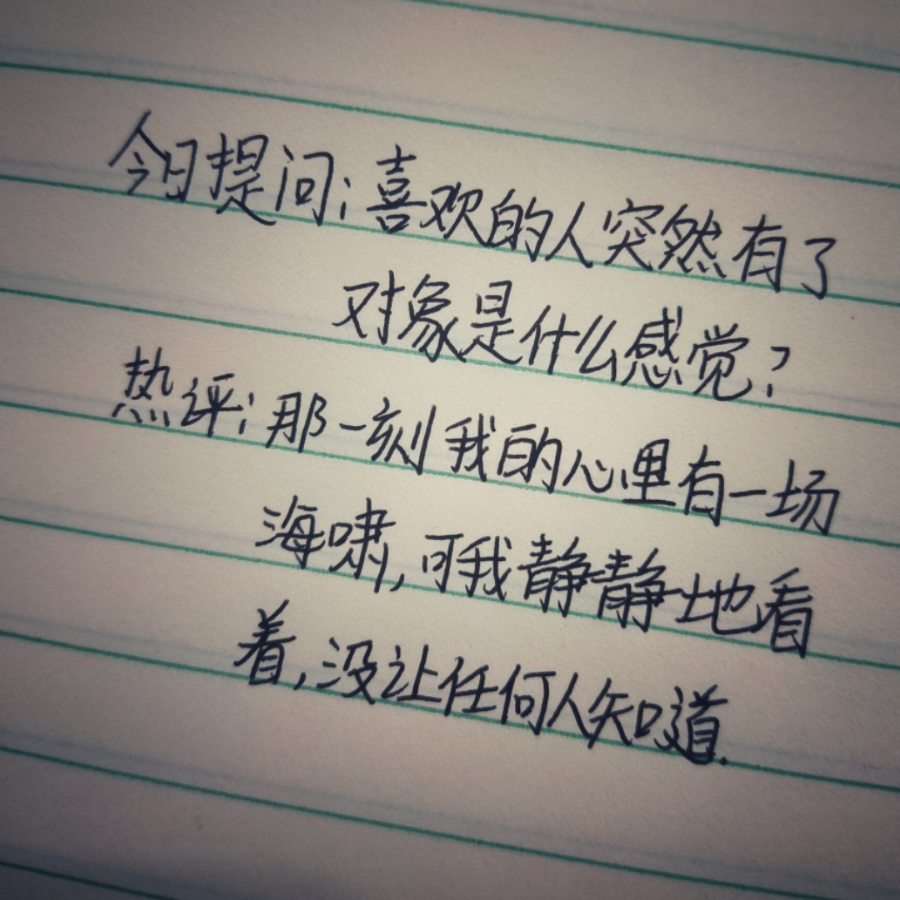 今日提问:喜欢的人突然有了
对象是什么感觉?
热评:那一刻我的心里有一场
海啸,可我静静地看
着,没让任何人知道.